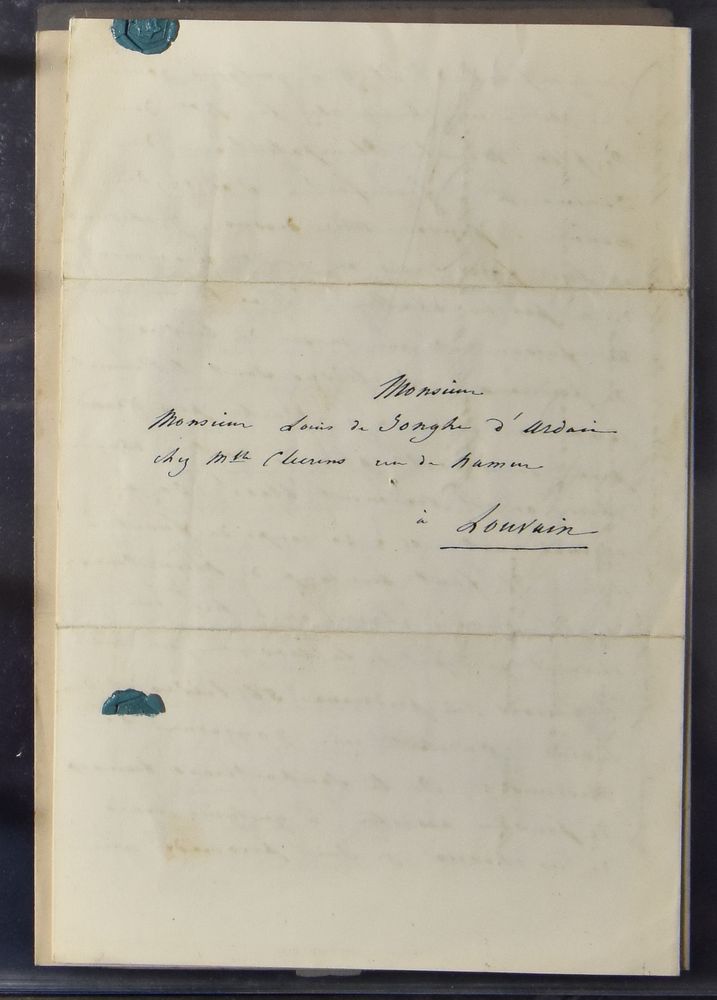 Monsieur
Monsieur Louis de Jonghe d'Ardoie
chez Mlle Cluerens rue de Namur
à Louvain